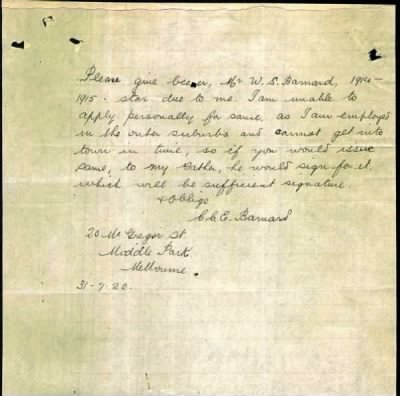 Please give bearer, Mr W. S. Barnard, 1914-
1915. star due to me. I am unable to
apply personally for same, as I am employed
in the outer suburbs and cannot get into
town in time, so if you would issue
same, to my father, he would sign for it.
which will be sufficient signature
& Oblige
C. C. E. Barnard
20 Mc Gregor St.
Middle Park.
Melbourne.
31-7-20.